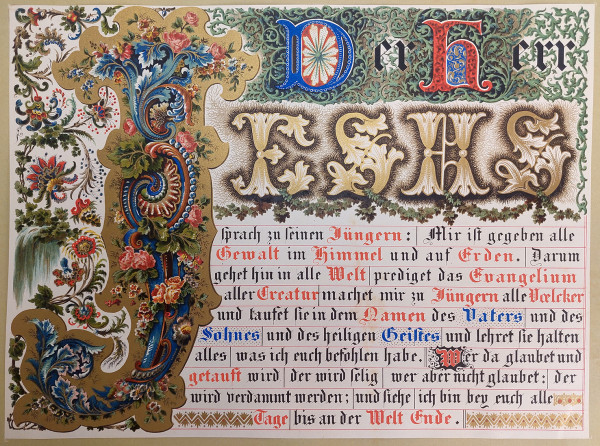 Der Herr
JESUS
sprach zu seinen Jüngern: Mir ist gegeben alle
Gewalt im Himmel und auf Erden. Darum
gehet hin in alle Welt prediget das Evangelium
aller Creatur machet mir zu Jüngern alle Vœlcker
und taufet sie in dem Namen des Vaters und des
Sohnes und des heiligen Geistes und lehret sie halten
alles was ich euch befohlen habe. Wer da glaubet und
getauft wird der wird selig wer aber nicht glaubet: der
wird verdammt werden; und siehe ich bin bey euch alle
Tage bis an der Welt Ende.